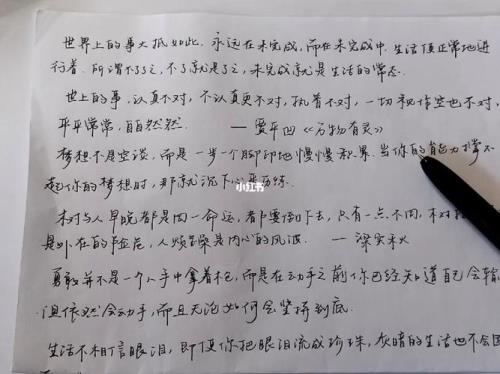 世界上的事大抵如此.永远在未完成,而在未完成中.生活便正常地进
行着.所谓不了了之,不了就是了之,未完成就是生活的常态.
世上的事,认真不对,不认真更不对,执着不对,一切视作空也不对,
平平常常,自自然然. ——贾平凹《万物有灵》
梦想不是空谈,而是一步一个脚印地慢慢积累.当你的能力撑不
起你的梦想时,那就沉下心来历练.
树与人早晚都是同一命运,都要倒下去,只有一点不同,树
是外在的 人烦 是内心的风波. ——梁实秋
勇敢并不是一个人手中拿着枪,而是在动手之前你已经知道自己会输
但依然会动手,而且无论如何会坚持到底.
生活不相信眼泪,即使你把眼泪流成珍珠,灰暗的生活也不会因
小红书